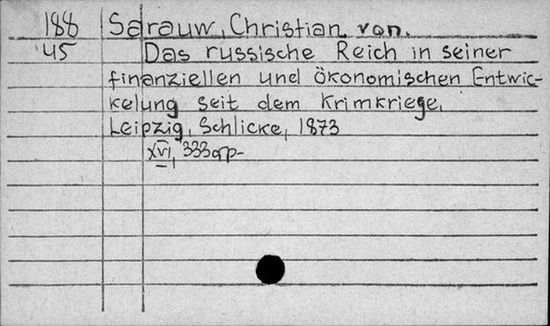 188 Sarauw, Christian von.
45 Das russische Reich in seiner
finanziellen und ökonomischen Entwic-
kelung seit dem Krimkriege.
Leipzig, Schlicke, 1873
XVI, 333 pp